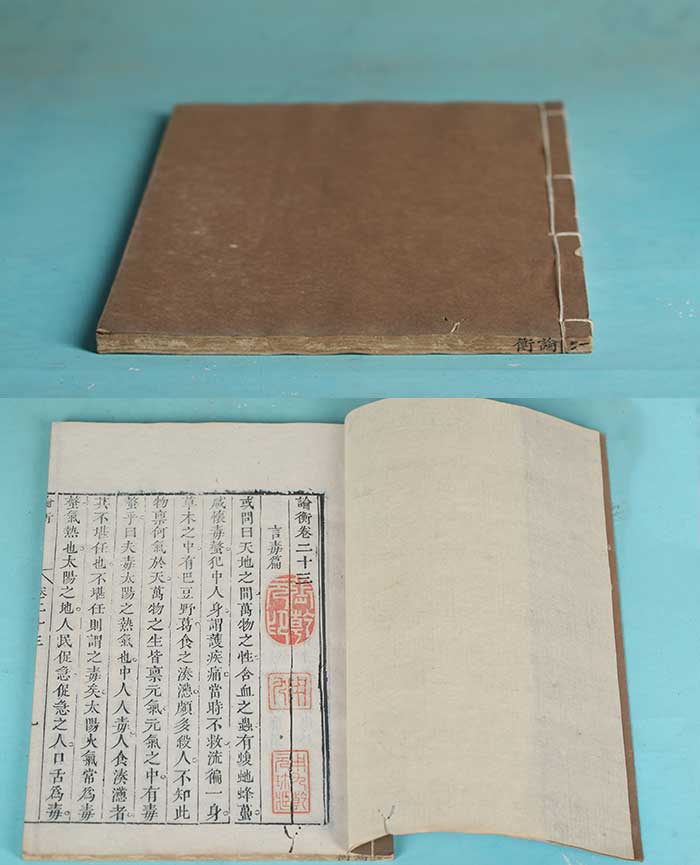 論衡
論衡卷二十三
言毒篇
或問曰天地之間萬物之性含血之蟲有蝮虵蜂蠆
咸懷毒螫犯中人身謂護疾痛當時不救流徧一身
草木之中有巴豆野葛食之湊懣頗多殺人不知此
物稟何氣於天萬物之生皆稟元氣元氣之中有毒
螫乎曰夫毒太陽之熱氣也中人人毒人食湊懣者
其不堪任也不堪任則謂之毒矣太陽火氣常爲毒
螫氣熱也太陽之地人民促急促急之人口舌爲毒
論衡 卷二十三